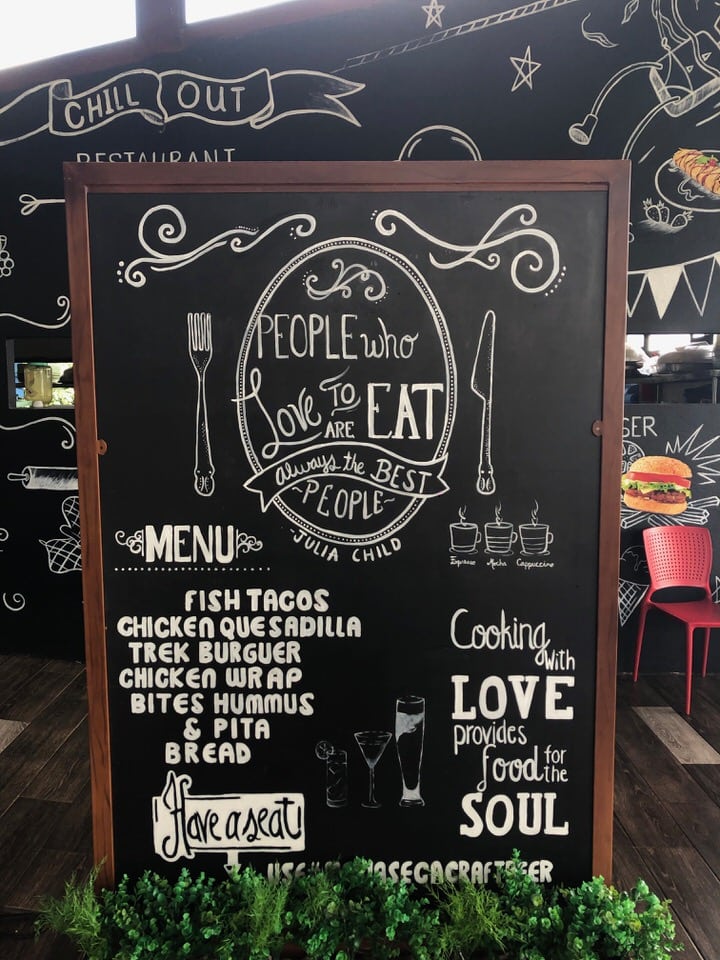 CHILL OUT
RESTAURANT
PEOPLE who
Love TO
ARE EAT
always the BEST
~PEOPLE~
JULIA CHILD
MENU
Espresso Mocha Cappuccino
FISH TACOS
CHICKEN QUESADILLA
TREK BURGUER
CHICKEN WRAP
BITES HUMMUS
& PITA
BREAD
Cooking
with
LOVE
provides
food for
the
SOUL
Have a seat!